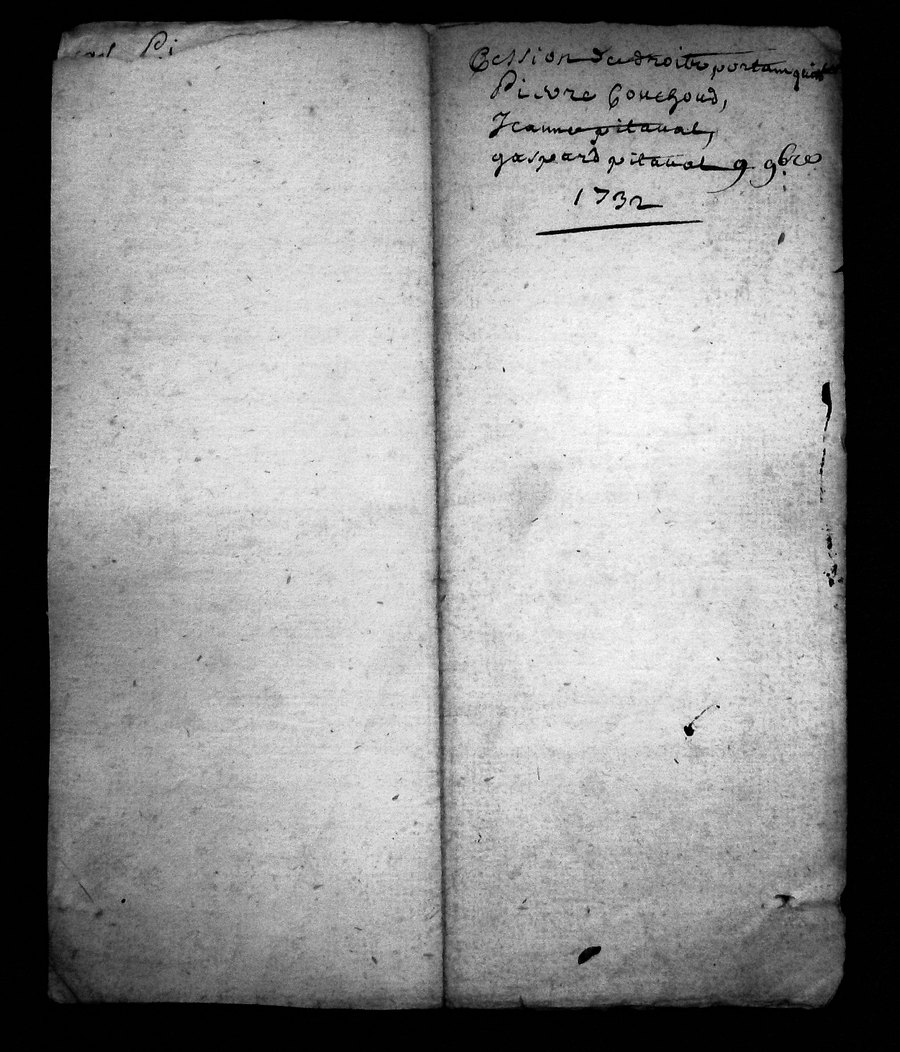 Pi
Cession de droits portant quit
Pierre Couchoud,
Jeanne pitaval,
gaspard pitaval 9 9bre
1732